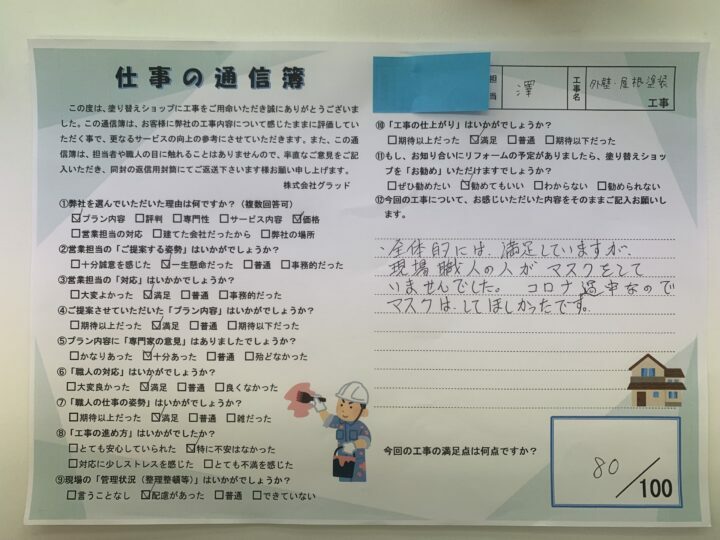 仕事の通信簿
この度は、塗り替えショップに工事をご用命いただき誠にありがとうございま
した。この通信簿は、お客様に弊社の工事内容について感じたままに評価してい
ただく事で、更なるサービスの向上の参考にさせていただきます。また、この通
信簿は、担当者や職人の目に触れることはありませんので、率直なご意見をご記
入いただき、同封の返信用封筒にてご返送下さいます様お願い申し上げます。
株式会社グラッド
①弊社を選んでいただいた理由は何ですか?(複数回答可)
☑プラン内容 □評判 □専門性 □サービス内容 ☑価格
□営業担当の対応 □建てた会社だったから □弊社の場所
②営業担当の「ご提案する姿勢」はいかがでしょうか?
□十分誠意を感じた ☑一生懸命だった □普通 □事務的だった
③営業担当の「対応」はいかかでしょうか?
□大変よかった ☑満足 □普通 □事務的だった
④ご提案させていただいた「プラン内容」はいかがでしょうか?
□期待以上だった ☑満足 □普通 □期待以下だった
⑤プラン内容に「専門家の意見」はありましたでしょうか?
□かなりあった ☑十分あった □普通 □殆どなかった
⑥「職人の対応」はいかがでしょうか?
□大変良かった ☑満足 □普通 □良くなかった
⑦「職人の仕事の姿勢」はいかがでしょうか?
□期待以上だった ☑満足 □普通 □雑だった
⑧「工事の進め方」はいかがでしたか?
□とても安心していられた ☑特に不安はなかった
□対応に少しストレスを感じた □とても不満を感じた
⑨現場の「管理状況(整理整頓等)」はいかがでしょうか?
□言うことなし ☑配慮があった □普通 □できていない
担当 澤 工事名 外壁・屋根塗装 工事
⑩「工事の仕上がり」はいかがでしょうか?
□期待以上だった ☑満足 □普通 □期待以下だった
⑪もし、お知り合いにリフォームの予定がありましたら、塗り替えショッ
プを「お勧め」いただけますでしょうか?
□ぜひ勧めたい ☑勧めてもいい □わからない □勧められない
⑫今回の工事について、お感じいただいた内容をそのままご記入お願いし
ます。
・全体的には、満足していますが、
現場職人の人がマスクをして
いませんでした。 コロナ過中なので
マスクは、してほしかったです。
今回の工事の満足点は何点ですか?
80/100